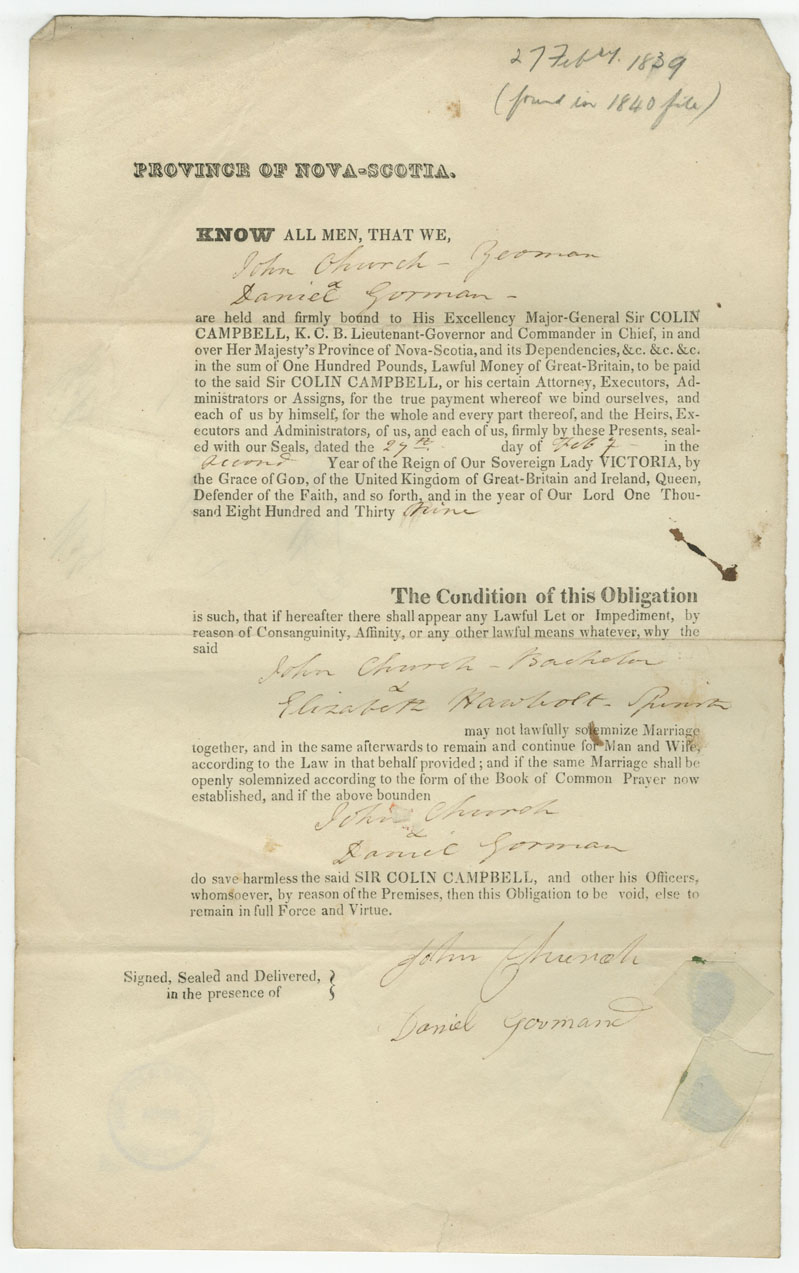 27 Feby. 1839
(found in 1840 file)
PROVINCE OF NOVA-SCOTIA.
KNOW ALL MEN, THAT WE,
John Church - Yeoman
&
Daniel Gorman -
are held and firmly bound to His Excellency Major-General Sir COLIN
CAMPBELL, K. C. B. Lieutenant-Governor and Commander in Chief, in and
over Her Majesty's Province of Nova-Scotia, and its Dependencies, &c. &c. &c.
in the sum of One Hundred Pounds, Lawful Money of Great-Britain, to be paid
to the said Sir COLIN CAMPBELL, or his certain Attorney, Executors, Ad-
ministrators or Assigns, for the true payment whereof we bind ourselves, and
each of us by himself, for the whole and every part thereof, and the Heirs, Ex-
ecutors and Administrators, of us, and each of us, firmly by these Presents, seal-
ed with our Seals, dated the 27th day of Feby in the
second Year of the Reign of Our Sovereign Lady VICTORIA, by
the Grace of GOD, of the United Kingdom of Great-Britain and Ireland, Queen,
Defender of the Faith, and so forth, and in the year of Our Lord One Thou-
sand Eight Hundred and Thirty Nine
The Condition of this Obligation
is such, that if hereafter there shall appear any Lawful Let or Impediment, by
reason of Consanguinity, Affinity, or any other lawful means whatever, why the
said
John Church - Bachelor
&
Elizabeth Hawbolt - Spinster
may not lawfully solemnize Marriage
together, and in the same afterwards to remain and continue for Man and Wife,
according to the Law in that behalf provided; and if the same Marriage shall be
openly solemnized according to the form of the Book of Common Prayer now
established, and if the above bounden
John Church
&
Daniel Gorman
do save harmless the said SIR COLIN CAMPBELL, and other his Officers,
whomsoever, by reason of the Premises, then this Obligation to be void, else to
remain in full Force and Virtue.
John Church
Signed, Sealed and Delivered,
in the presence of
Daniel Gormand